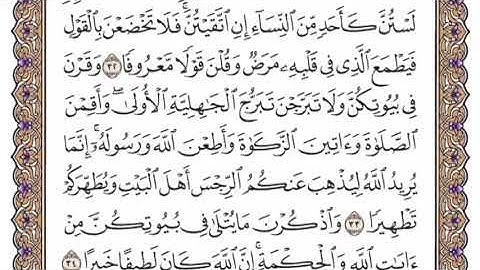 لَسْتُنَّ كَأَحَدٍ مِّنَ النِّسَآءِ إِنِ اتَّقَيْتُنَّ ۚ فَلَا تَخْضَعْنَ بِالْقَوْلِ
فَيَطْمَعَ الَّذِى فِى قَلْبِهِۦ مَرَضٌ وَقُلْنَ قَوْلًا مَّعْرُوفًا ٣٢ وَقَرْنَ
فِى بُيُوتِكُنَّ وَلَا تَبَرَّجْنَ تَبَرُّجَ الْجَٰهِلِيَّةِ الْأُولَىٰ ۖ وَأَقِمْنَ
الصَّلَوٰةَ وَءَاتِينَ الزَّكَوٰةَ وَأَطِعْنَ اللَّهَ وَرَسُولَهُۥٓ ۚ إِنَّمَا
يُرِيدُ اللَّهُ لِيُذْهِبَ عَنكُمُ الرِّجْسَ أَهْلَ الْبَيْتِ وَيُطَهِّرَكُمْ
تَطْهِيرًا ٣٣ وَاذْكُرْنَ مَا يُتْلَىٰ فِى بُيُوتِكُنَّ مِنْ
ءَايَٰتِ اللَّهِ وَالْحِكْمَةِ ۚ إِنَّ اللَّهَ كَانَ لَطِيفًا خَبِيرًا ٣٤